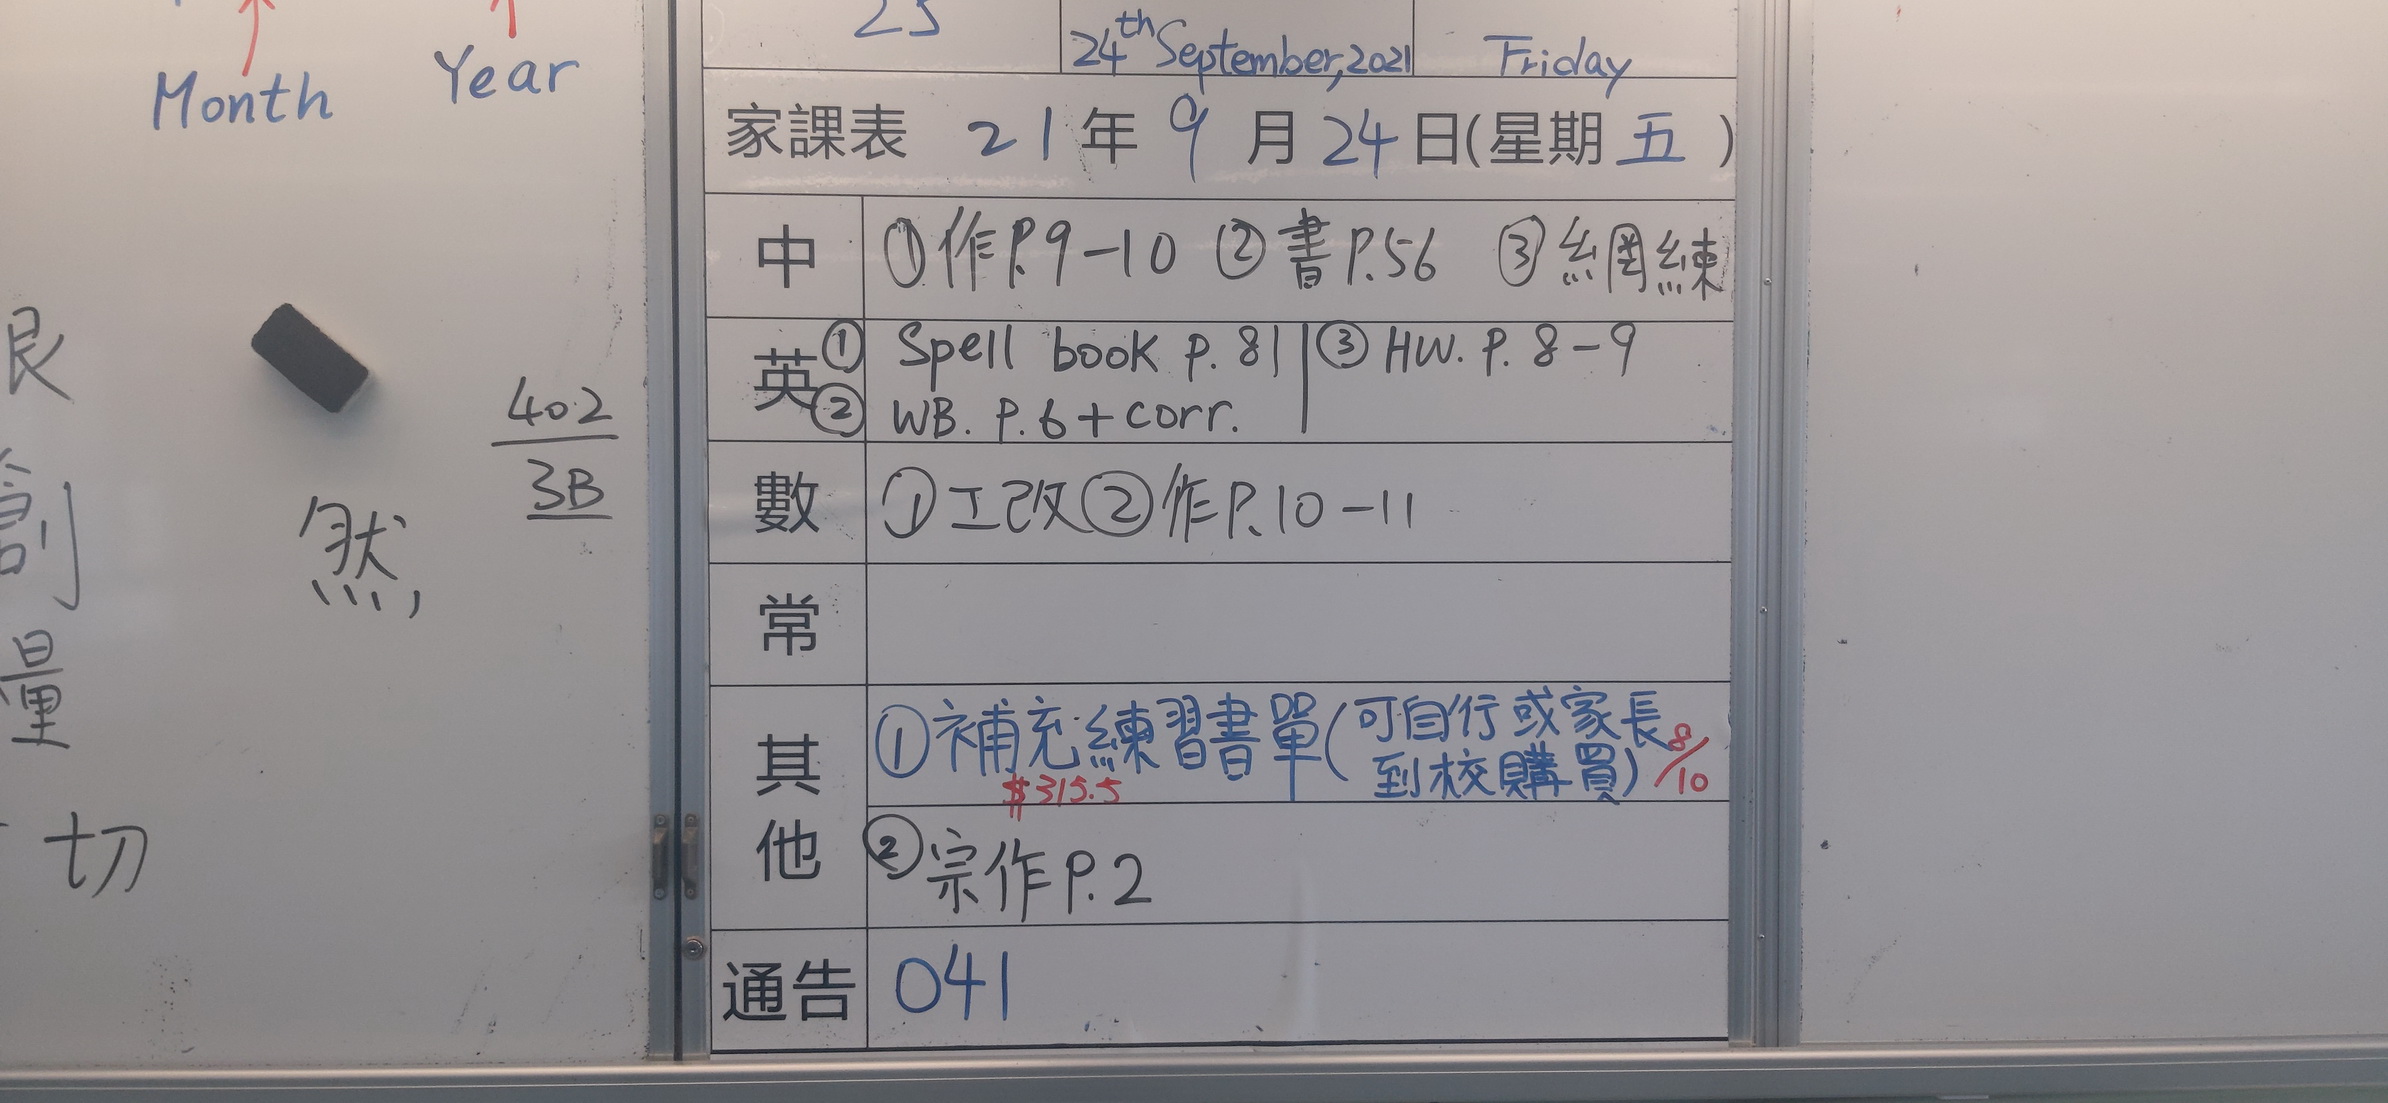 Month
Year
24th September, 2021
Friday
家課表 21年9月24日(星期五)
艮
創
量
切
然
402
3B
中 ①作P.9-10 ②書P.56 ③網練
英 ① Spell book p. 81 | ③ HW. P. 8-9
② WB. P. 6 + corr.
數 ①工改②作P.10-11
常
其他 ①補充練習書單(可自行或家長
到校購買) 8/10
$315.5
②宗作P.2
通告 041